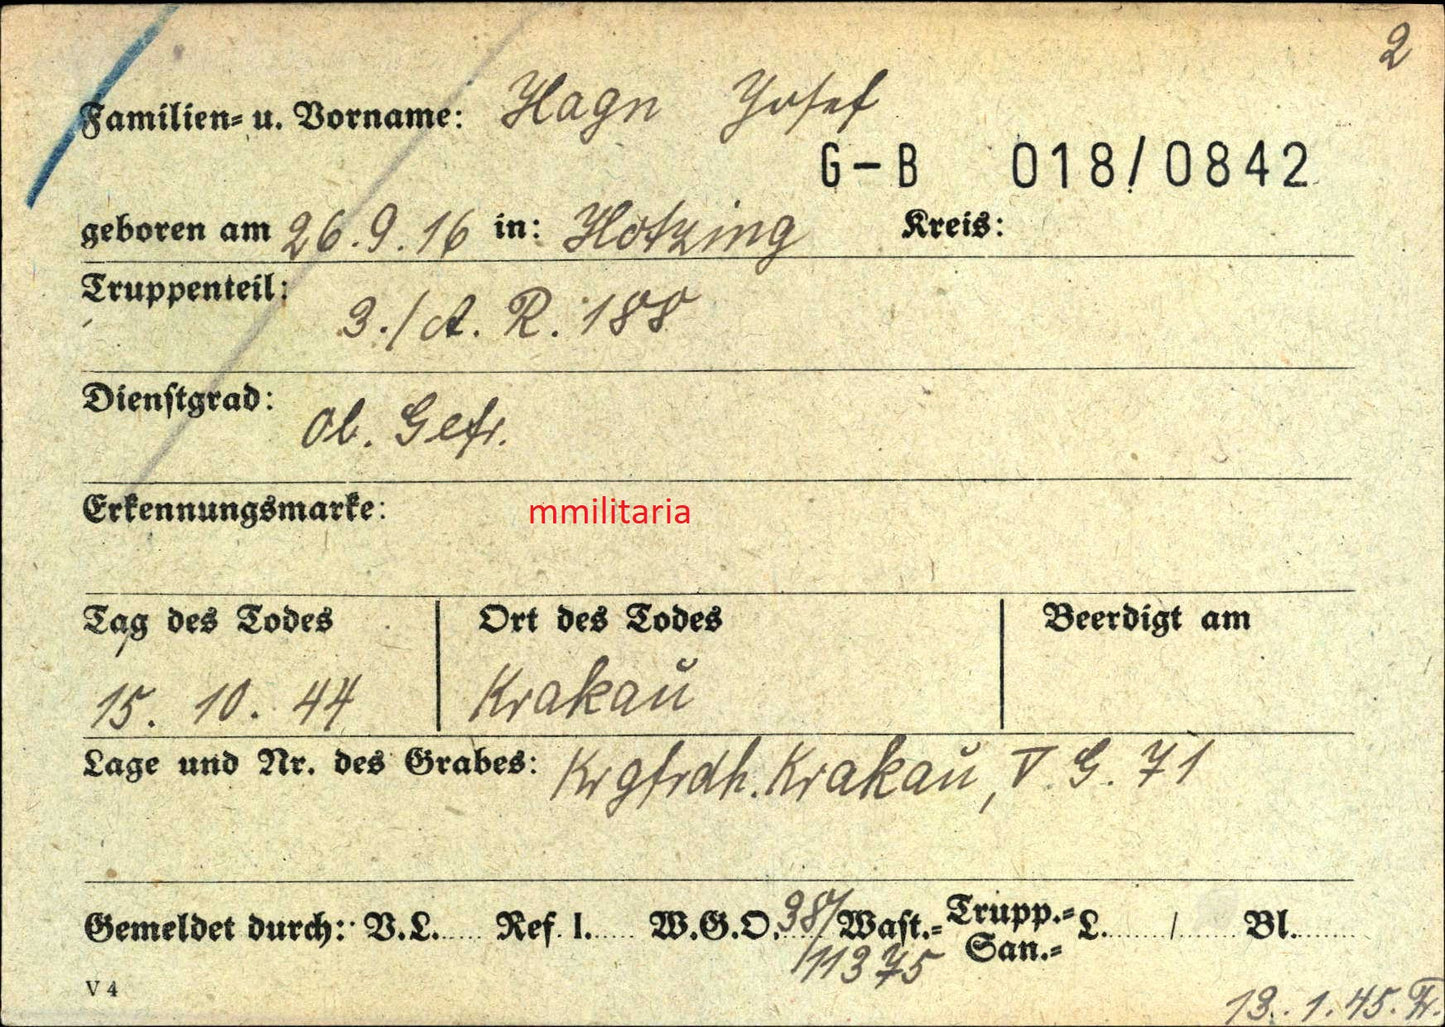 2
Familien- u. Vorname: Hagn Josef
G-B 018/0842
geboren am 26.9.16 in: Hotzing Kreis:
Truppenteil: 3./A. R. 188
Dienstgrad: Ob. Gefr.
Erkennungsmarke: mmilitaria
Tag des Todes Ort des Todes Beerdigt am
15. 10. 44 Krakau
Lage und Nr. des Grabes: Krgfrdh. Krakau, V. G. 71
Gemeldet durch: V.L. Ref I. W.G.O. 38/11375 Wast.- Trupp.- San.- L. / Bl.
V 4
13. 1. 45.